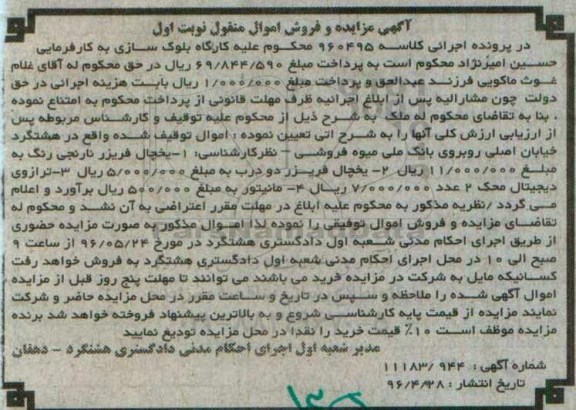 آگهی مزایده و فروش اموال منقول نوبت اول
در پرونده اجرائی کلاسه ۹۶۰۴۹۵ محکوم علیه کارگاه بلوک سازی به کارفرمایی
حسین امیرنژاد محکوم است به پرداخت مبلغ ۶۹/۸۴۴/۵۹۰ ریال در حق محکوم له آقای غلام
غوث ماکویی فرزند عبدالحق و پرداخت مبلغ ۱/۰۰۰/۰۰۰ ریال بابت هزینه اجرائی در حق
دولت چون مشارالیه پس از ابلاغ اجرائیه ظرف مهلت قانونی از پرداخت محکوم به امتناع نموده
. بنا به تقاضای محکوم له ملک به شرح ذیل از محکوم علیه توقیف و کارشناس مربوطه پس
از ارزیابی ارزش کلی آنها را به شرح اتی تعیین نموده : اموال توقیف شده واقع در هشتگرد
خیابان اصلی روبروی بانک ملی میوه فروشی - نظرکارشناسی: ۱-یخچال فریزر نارنجی رنگ به
مبلغ ۱۱/۰۰۰/۰۰۰ ریال ۲- یخچال فریزر دو درب به مبلغ ۵/۰۰۰/۰۰۰ ریال ۳-ترازوی
دیجیتال محک ۲ عدد ۷/۰۰۰/۰۰۰ ریال ۴- مانیتور به مبلغ ۵۰۰/۰۰۰ ریال برآورد و اعلام
می گردد /نظریه مذکور به محکوم علیه ابلاغ در مهلت مقرر اعتراضی به آن نشد و محکوم له
تقاضای مزایده و فروش اموال توقیفی را نموده لذا اموال مذکور به صورت مزایده حضوری
از طریق اجرای احکام مدنی شعبه اول دادگستری هشتگرد در مورخ ۹۶/۰۵/۲۴ از ساعت ۹
صبح الی ۱۰ در محل اجرای احکام مدنی شعبه اول دادگستری هشتگرد به فروش خواهد رفت
کسانیکه مایل به شرکت در مزایده خرید می باشند می توانند تا مهلت پنج روز قبل از مزایده
اموال آگهی شده را ملاحظه و سپس در تاریخ و ساعت مقرر در محل مزایده حاضر و شرکت
نمایند مزایده از قیمت پایه کارشناسی شروع و به بالاترین پیشنهاد فروخته خواهد شد برنده
مزایده موظف است ۱۰٪ قیمت خرید را نقدا در محل مزایده تودیع نمایید
مدیر شعبه اول اجرای احکام مدنی دادگستری هشتگرد - دهقان
شماره آگهی : ۱۱۱۸۳/۹۴۴
تاریخ انتشار : ۹۶/۴/۲۸